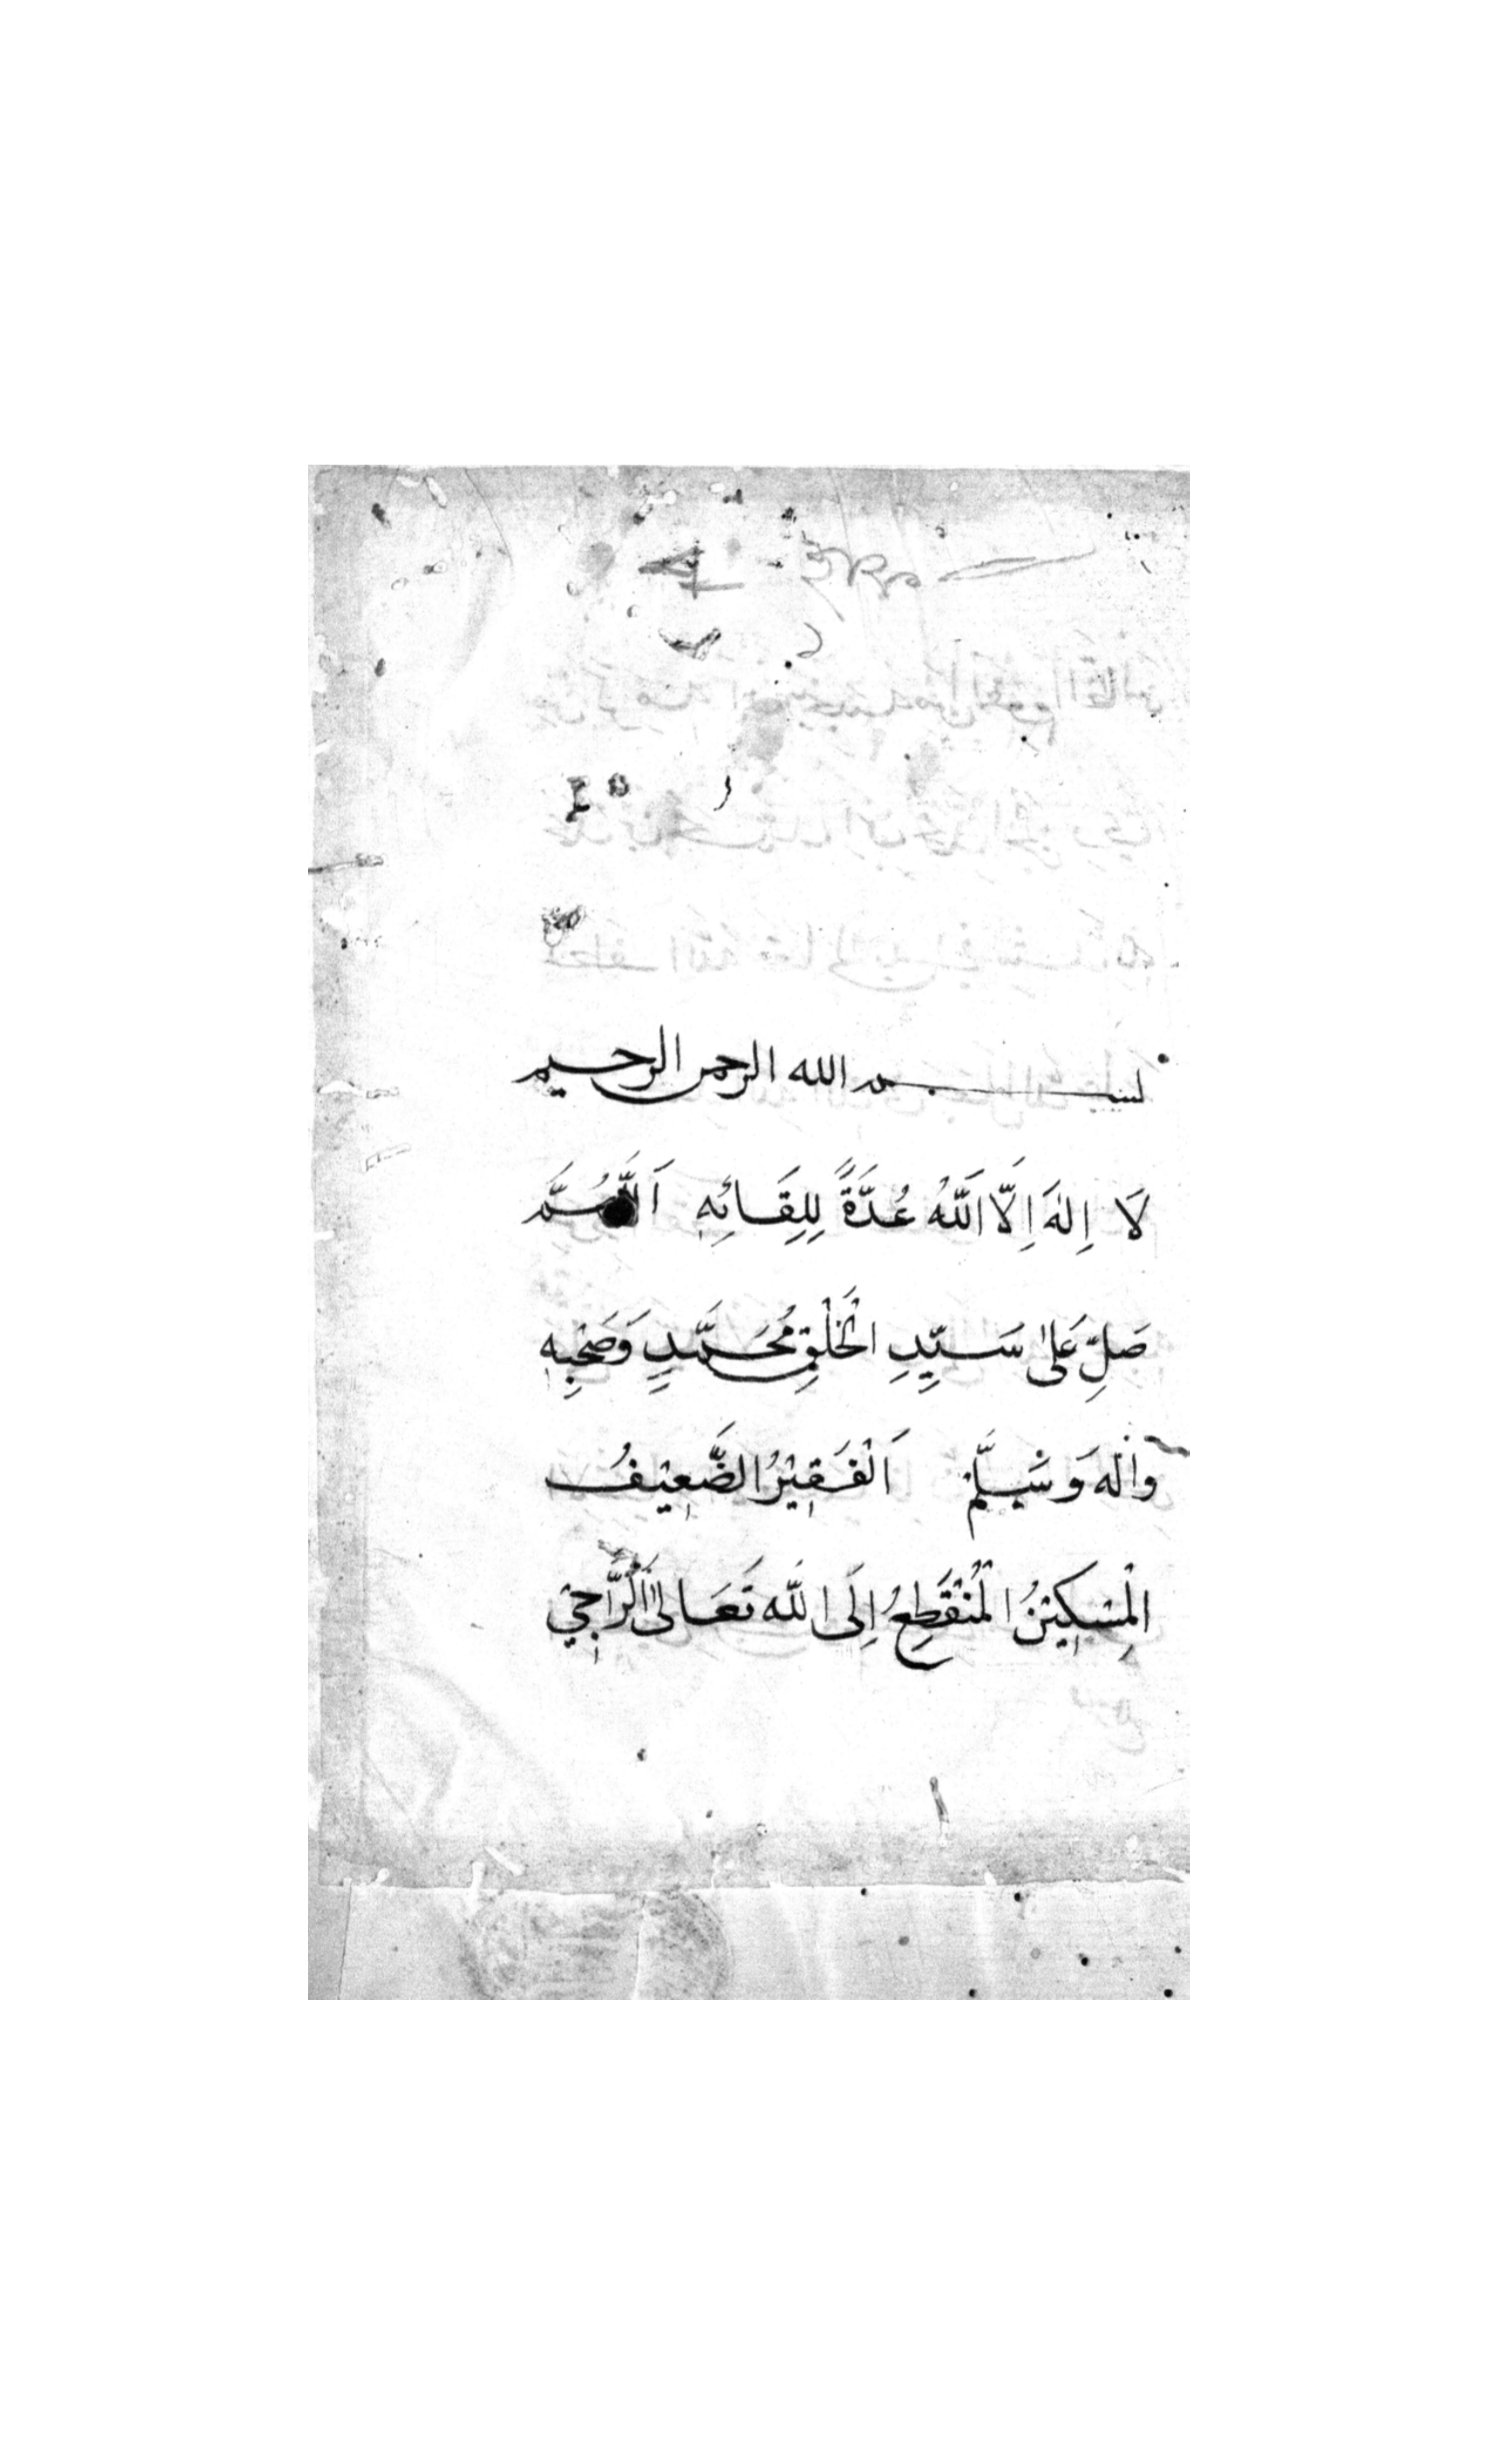 بسم الله الرحمن الرحيم
لَا اِلٰهَ اِلَّا اللّٰهُ عُدَّةً لِلِقَائِهٖ اَللّٰهُمَّ
صَلِّ عَلٰى سَيِّدِ الْخَلْقِ مُحَمَّدٍ وَصَحْبِهٖ
وَاٰلِهٖ وَسَلَّمْ اَلْفَقِيْرُ الضَّعِيْفُ
الْمِسْكِيْنُ الْمُنْقَطِعُ اِلَى اللّٰه تَعَالٰى اَلرَّاجِيْ